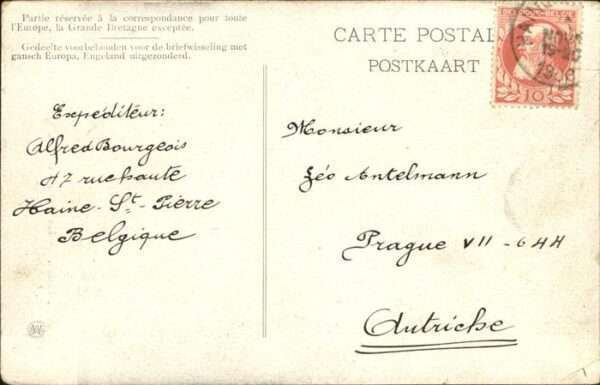 Partie réservée à la correspondance pour toute
l'Europe, la Grande Bretagne exceptée.
Gedeelte voorbehouden voor de briefwisseling met
gansch Europa, Engeland uitgezonderd.
CARTE POSTAL
POSTKAART
10
Expéditeur:
Alfred Bourgeois
47 rue haute
Haine-St-Pierre
Belgique
Monsieur
Léo Antelmann
Prague VII - 644
Autriche